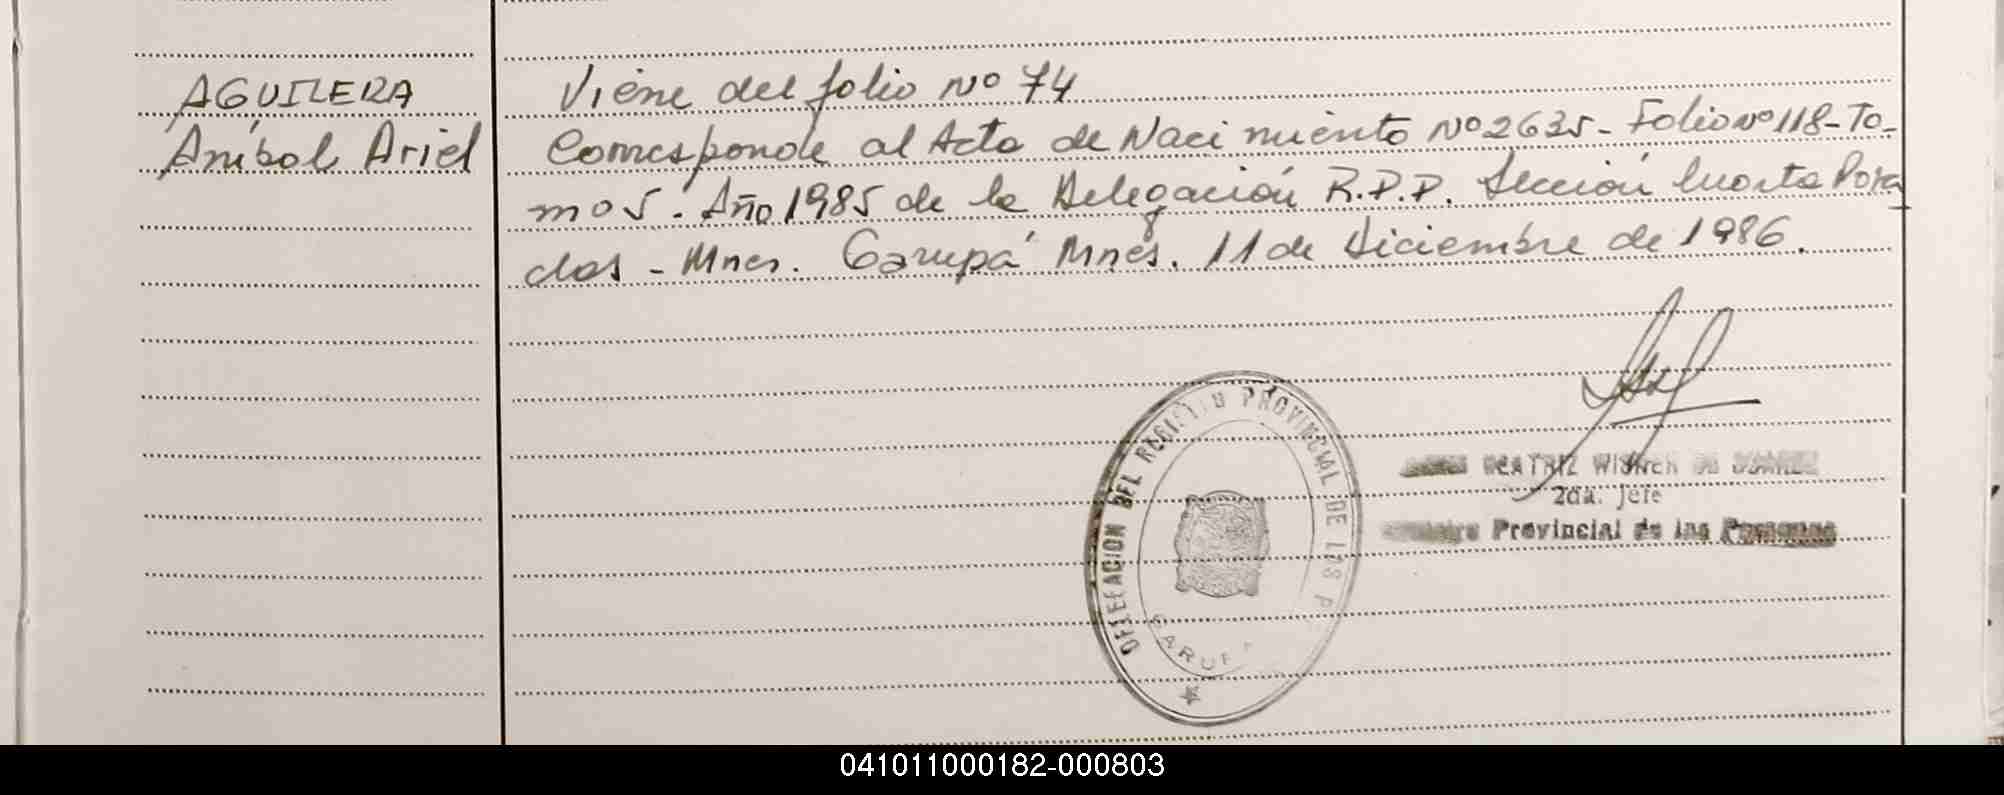 AGUILERA
Aníbal Ariel
Viene del folio Nº 74
Corresponde al Acta de Nacimiento Nº 2635 - Folio nº 118 - To-
mo 5. Año 1985 de la Delegación R.P.P. Sección Cuarta Posa
das - Mnes. Garupá Mnes. 11 de Diciembre de 1986.
DELEGACION DEL REGISTRO PROVINCIAL DE LAS P
GARUP
BEATRIZ WISNER DE
2da. Jefe
Provincial de las Personas
041011000182-000803